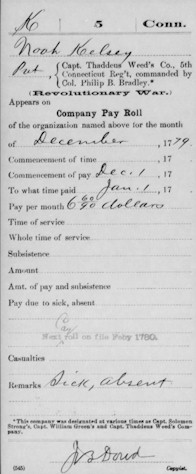 K 5 Conn.
Noah Kelsey
Pvt, Capt. Thaddeus Weed's Co., 5th
Connecticut Reg't, commanded by
Col. Philip B. Bradley.*
(Revolutionary War.)
Appears on
Company Pay Roll
of the organization named above for the month
of December, 1779.
Commencement of time, 17
Commencement of pay Dec. 1, 17
To what time paid Jan. 1, 17
Pay per month 6 60/90 dollars
Time of service
Whole time of service
Subsistence
Amount
Amt. of pay and subsistence
Pay due to sick, absent
Next roll on file Feby 1780.
Casualties
Remarks Sick, absent
*This company was designated at various times as Capt. Solomon
Strong's, Capt. William Green's and Capt. Thaddeus Weed's Com-
pany.
(545) Copyist.